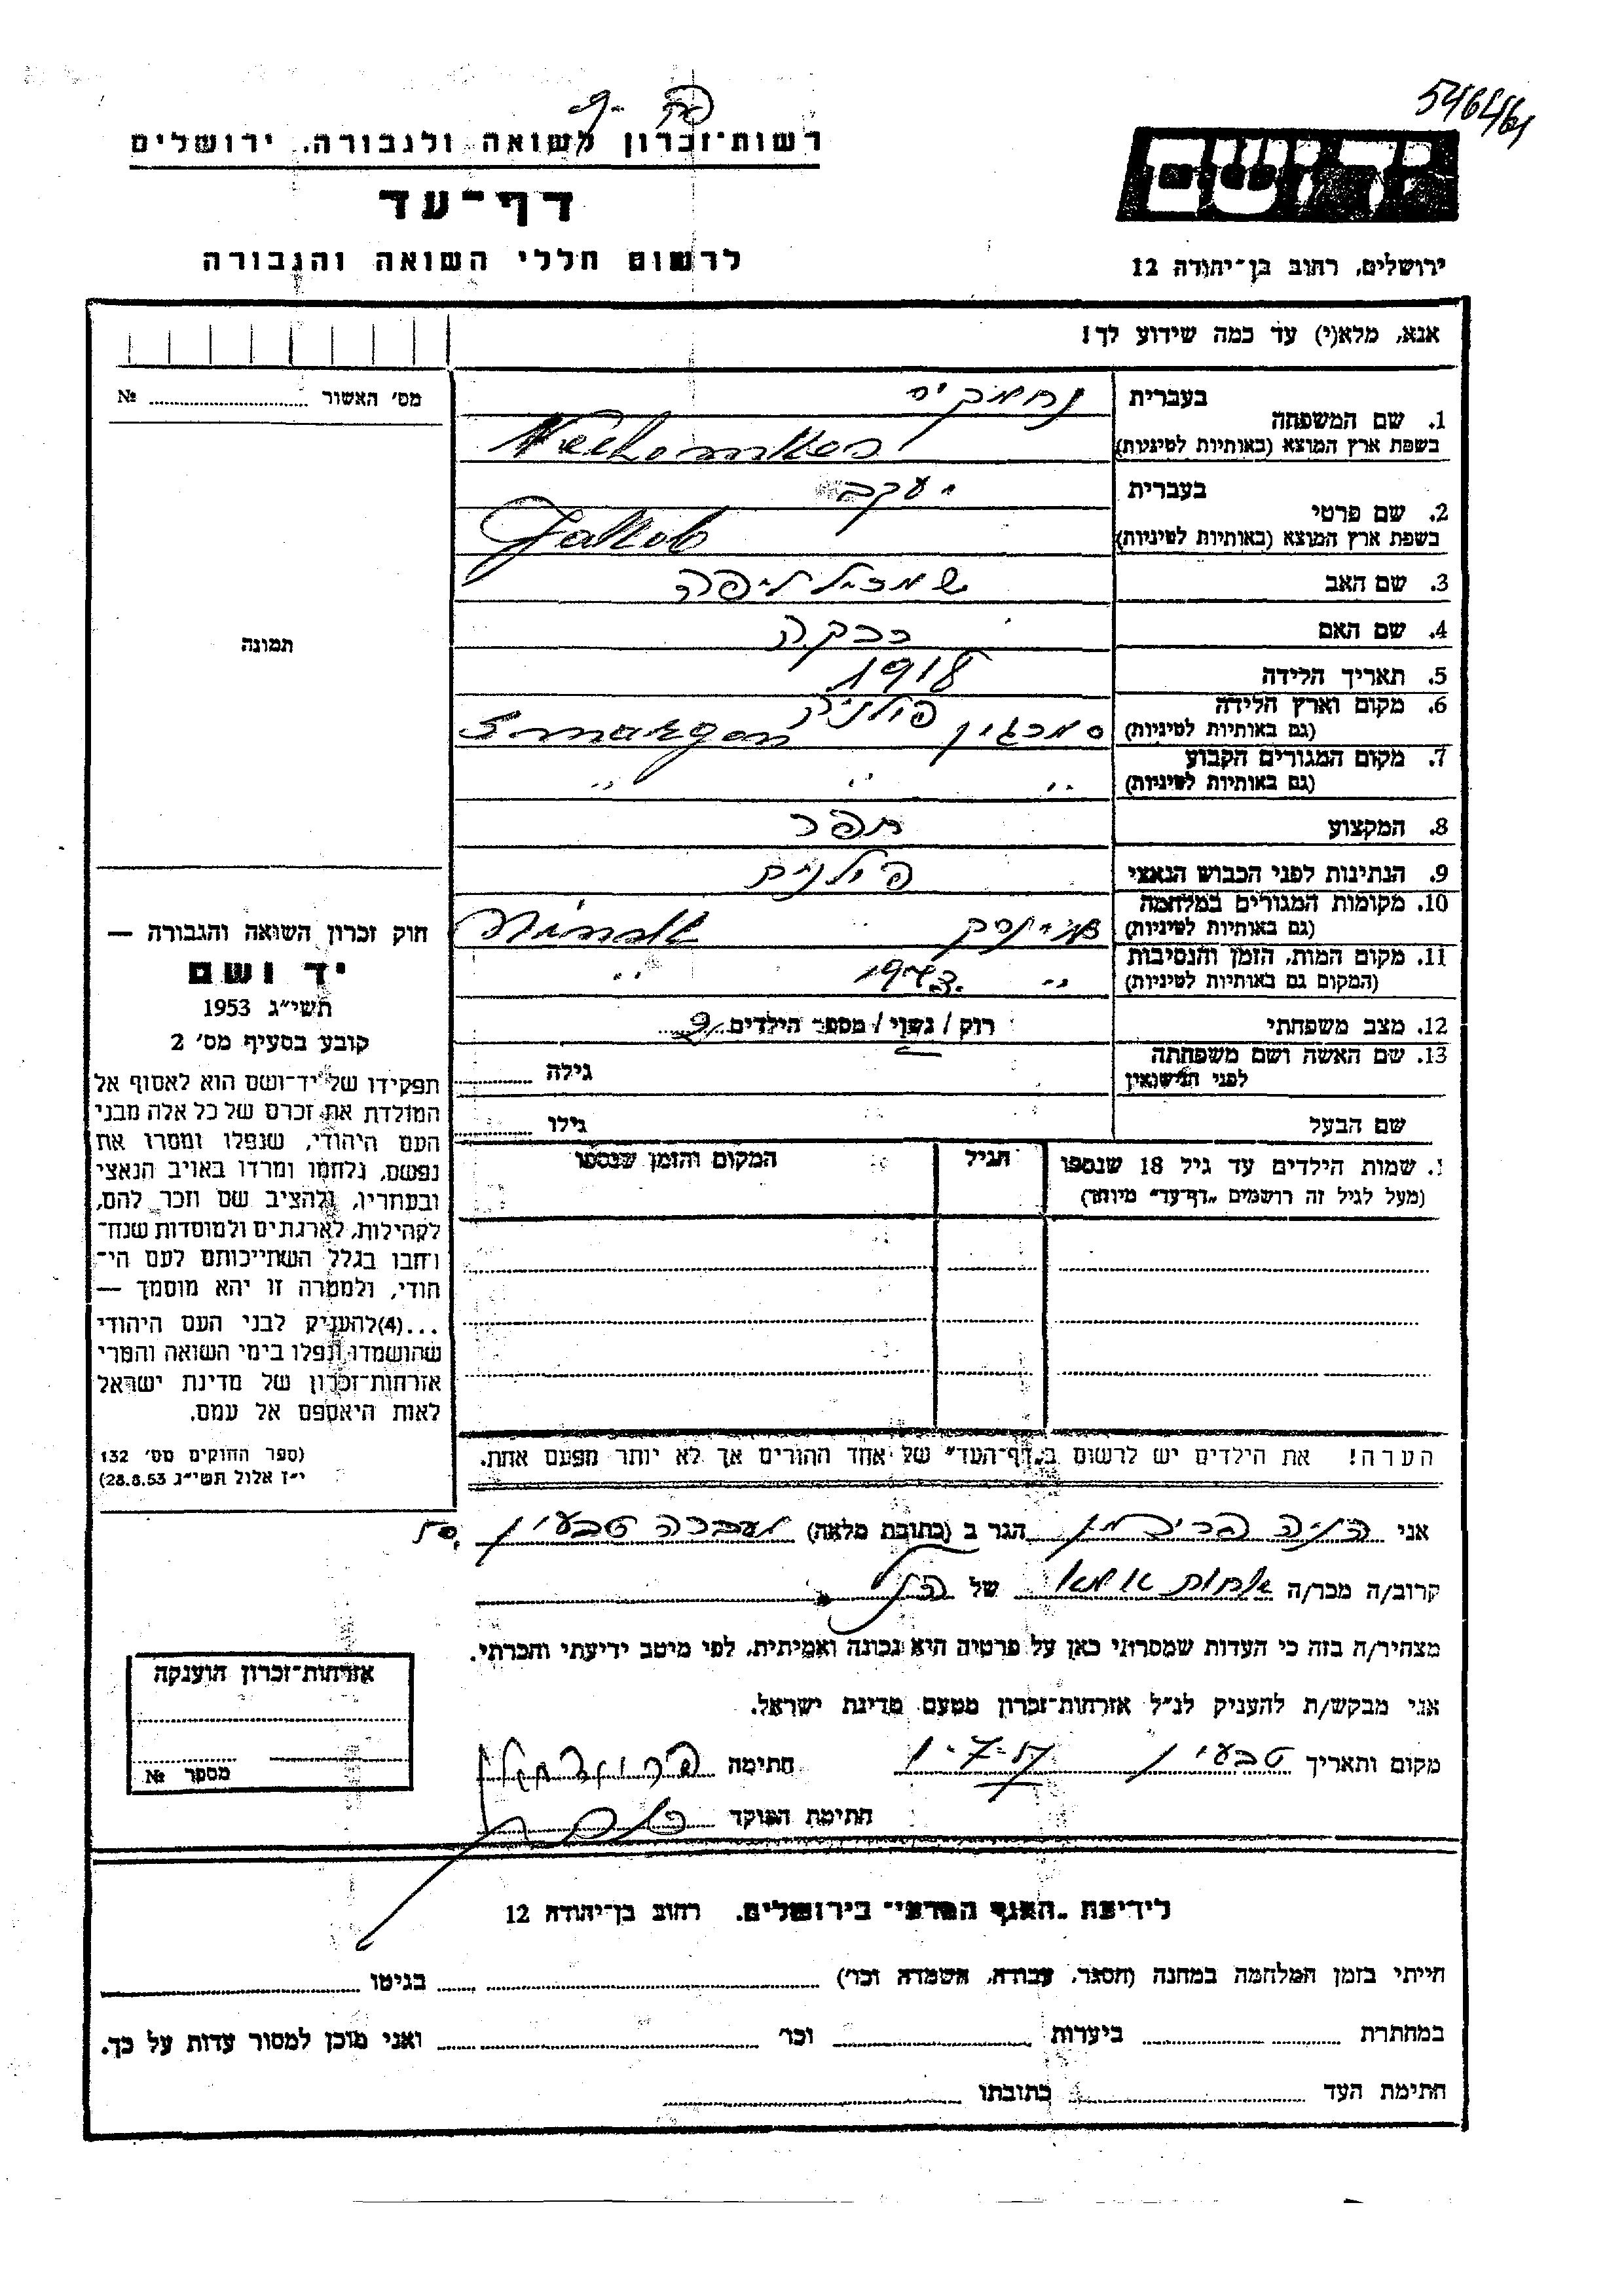 5464/61
רשות־זכרון לשואה ולגבורה, ירושלים
דף־עד
לרשום חללי השואה והגבורה
יד ושם
ירושלים, רחוב בן־יהודה 12
אנא, מלא(י) עד כמה שידוע לך!
מס׳ האשור № 
1. שם המשפחה בעברית נחומקיס
בשפת ארץ המוצא (באותיות לטיניות) Nechomkes
2. שם פרטי בעברית יעקב
בשפת ארץ המוצא (באותיות לטיניות) Jakob
3. שם האב שמואל ליפה
4. שם האם רבקה
5. תאריך הלידה 1918
6. מקום וארץ הלידה (גם באותיות לטיניות) סמרגון פולניה Smargon
7. מקום המגורים הקבוע (גם באותיות לטיניות) ״ ״ ״
8. המקצוע תפר
9. הנתינות לפני הכבוש הנאצי פולנית
10. מקומות המגורים במלחמה (גם באותיות לטיניות) Minsk
11. מקום המות, הזמן והנסיבות (המקום גם באותיות לטיניות) ״ 1943 ״
12. מצב משפחתי רוק / נשוי / מספר הילדים
13. שם האשה ושם משפחתה לפני הנישואין גילה
שם הבעל גילו
שמות הילדים עד גיל 18 שנספו (מעל לגיל זה רושמים „דף־עד״ מיוחד) הגיל המקום והזמן שנספו
הערה! את הילדים יש לרשום ב„דף־העד״ של אחד ההורים אך לא יותר מפעם אחת.
תמונה
חוק זכרון השואה והגבורה —
יד ושם
תשי״ג 1953
קובע בסעיף מס׳ 2
תפקידו של יד־ושם הוא לאסוף אל
המולדת את זכרם של כל אלה מבני
העם היהודי, שנפלו ומסרו את
נפשם, נלחמו ומרדו באויב הנאצי
ובעוזריו, ולהציב שם וזכר להם,
לקהילות, לארגונים ולמוסדות שנח־
רבו בגלל השתייכותם לעם הי־
הודי, ולמטרה זו יהא מוסמך —
...(4)להעניק לבני העם היהודי
שהושמדו ונפלו בימי השואה והמרי
אזרחות־זכרון של מדינת ישראל
לאות היאספם אל עמם.
(ספר החוקים מס׳ 132
י״ז אלול תשי״ג 28.8.53)
אני הניה פרידמן הגר ב (כתובת מלאה) מעברה טבעון
קרוב/ה מכר/ה אחות אמא של הנ״ל
מצהיר/ה בזה כי העדות שמסרתי כאן על פרטיה היא נכונה ואמיתית, לפי מיטב ידיעתי והכרתי.
אני מבקש/ת להעניק לנ״ל אזרחות־זכרון מטעם מדינת ישראל.
מקום ותאריך טבעון 1-7-57 חתימה
חתימת הפוקד
אזרחות־זכרון הוענקה
מספר №
לידיעת „האגף המדעי״ בירושלים, רחוב בן־יהודה 12
הייתי בזמן המלחמה במחנה (הסגר, עבודה, השמדה וכו׳) בגיטו
במחתרת ביערות וכו׳ ואני מוכן למסור עדות על כך.
חתימת העד כתובתו